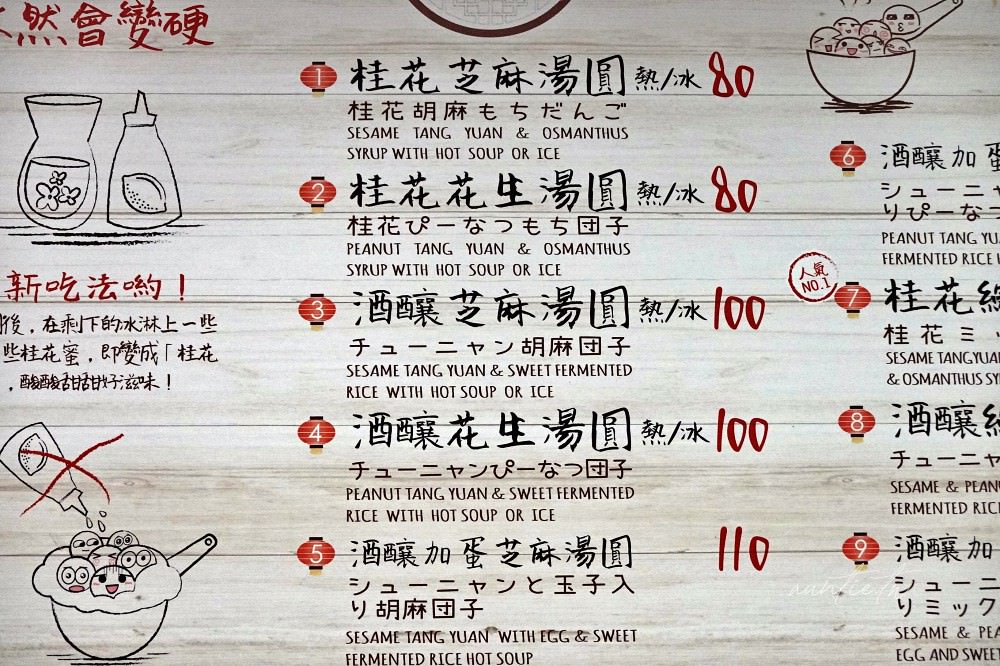 然會變硬
新吃法喲！
後，在剩下的冰淋上一些
些桂花蜜，即變成「桂花
，酸酸甜甜好滋味！
1 桂花芝麻湯圓 熱/冰 80
桂花胡麻もちだんご
SESAME TANG YUAN & OSMANTHUS
SYRUP WITH HOT SOUP OR ICE
2 桂花花生湯圓 熱/冰 80
桂花ぴーなつもち団子
PEANUT TANG YUAN & OSMANTHUS
SYRUP WITH HOT SOUP OR ICE
3 酒釀芝麻湯圓 熱/冰 100
チューニャン胡麻団子
SESAME TANG YUAN & SWEET FERMENTED
RICE WITH HOT SOUP OR ICE
4 酒釀花生湯圓 熱/冰 100
チューニャンぴーなつ団子
PEANUT TANG YUAN & SWEET FERMENTED
RICE WITH HOT SOUP OR ICE
5 酒釀加蛋芝麻湯圓 110
シューニャンと玉子入
り胡麻団子
SESAME TANG YUAN WITH EGG & SWEET
FERMENTED RICE HOT SOUP
6 酒釀加蛋
シューニャ
りぴーなつ
PEANUT TANG YU
FERMENTED RICE H
人氣
NO.1
7 桂花綜
桂花ミッ
SESAME TANG YUAN
& OSMANTHUS SY
8 酒釀綜
チューニャ
SESAME & PEAN
FERMENTED RICE
9 酒釀加
シューニ
りミック
SESAME & PEA
EGG AND SWEET